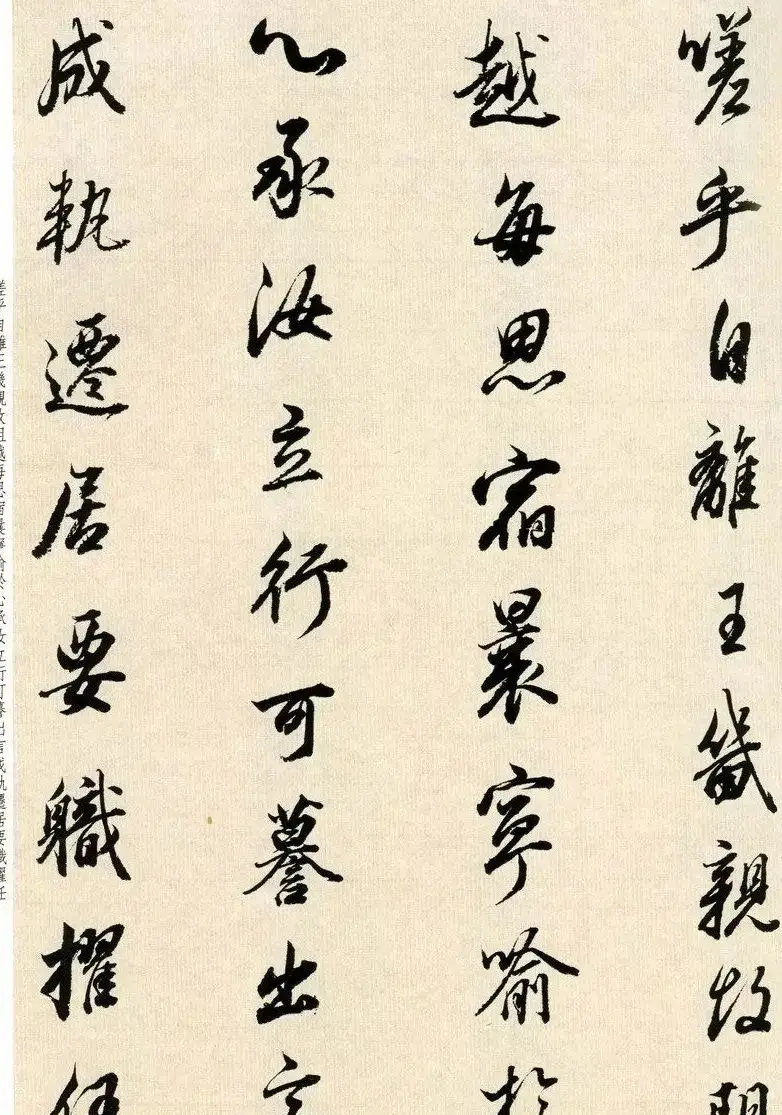 嗟乎自離王畿親故
越每思宿曩寧喻於
心承汝立行可謩出言
成軌遷居要職擢任
嗟乎自離王畿親故阻越每思宿曩寧喻於心承汝立行可謩出言成軌遷居要職擢任